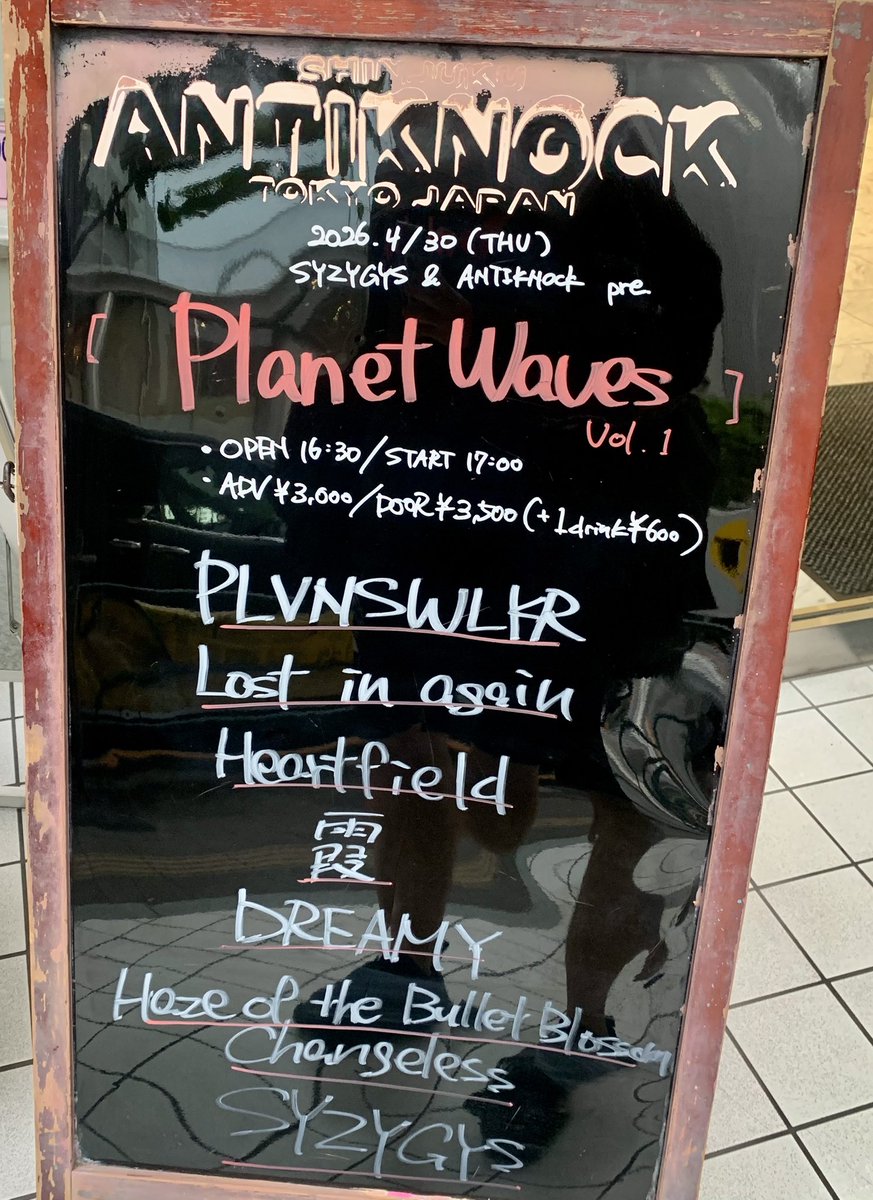 SHINJUKU
ANTIKNOCK
TOKYO JAPAN
2026.4/30 (THU)
SYZYGYS & ANTIKNOCK pre
[ Planet Waves ]
Vol. 1
・OPEN 16:30/START 17:00
・ADV ¥3,000/DOOR ¥3,500 (+1drink¥600)
PLVNSWLKR
Lost in again
Heartfield
霞
DREAMY
Haze of the Bullet Blossom
Changeless
SYZYGYS